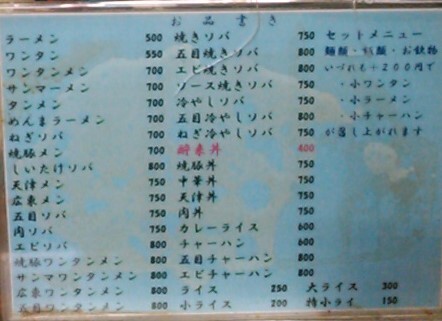 お品書き
ラーメン 500
ワンタン 550
ワンタンメン 700
サンマーメン 700
タンメン 700
めんまラーメン 700
ねぎソバ 700
焼豚メン 700
しいたけソバ 800
天津メン 750
広東メン 750
五目ソバ 750
肉ソバ 750
エビソバ 800
焼豚ワンタンメン 800
サンマワンタンメン 800
広東ワンタンメン 800
五目ワンタンメン 800
焼きソバ 750
五目焼きソバ 800
エビ焼きソバ 800
ソース焼きソバ 750
冷やしソバ 750
五目冷やしソバ 800
ねぎ冷やしソバ 750
丼 400
焼豚丼 750
中華丼 750
天津丼 750
肉丼 750
カレーライス 600
チャーハン 600
五目チャーハン 800
エビチャーハン 800
ライス 250
小ライス 200
セットメニュー
麺類・飯類・お飲物
いづれも+200円で
・小ワンタン
・小ラーメン
・小チャーハン
が召し上がれます
大ライス 300
特小ライ 150